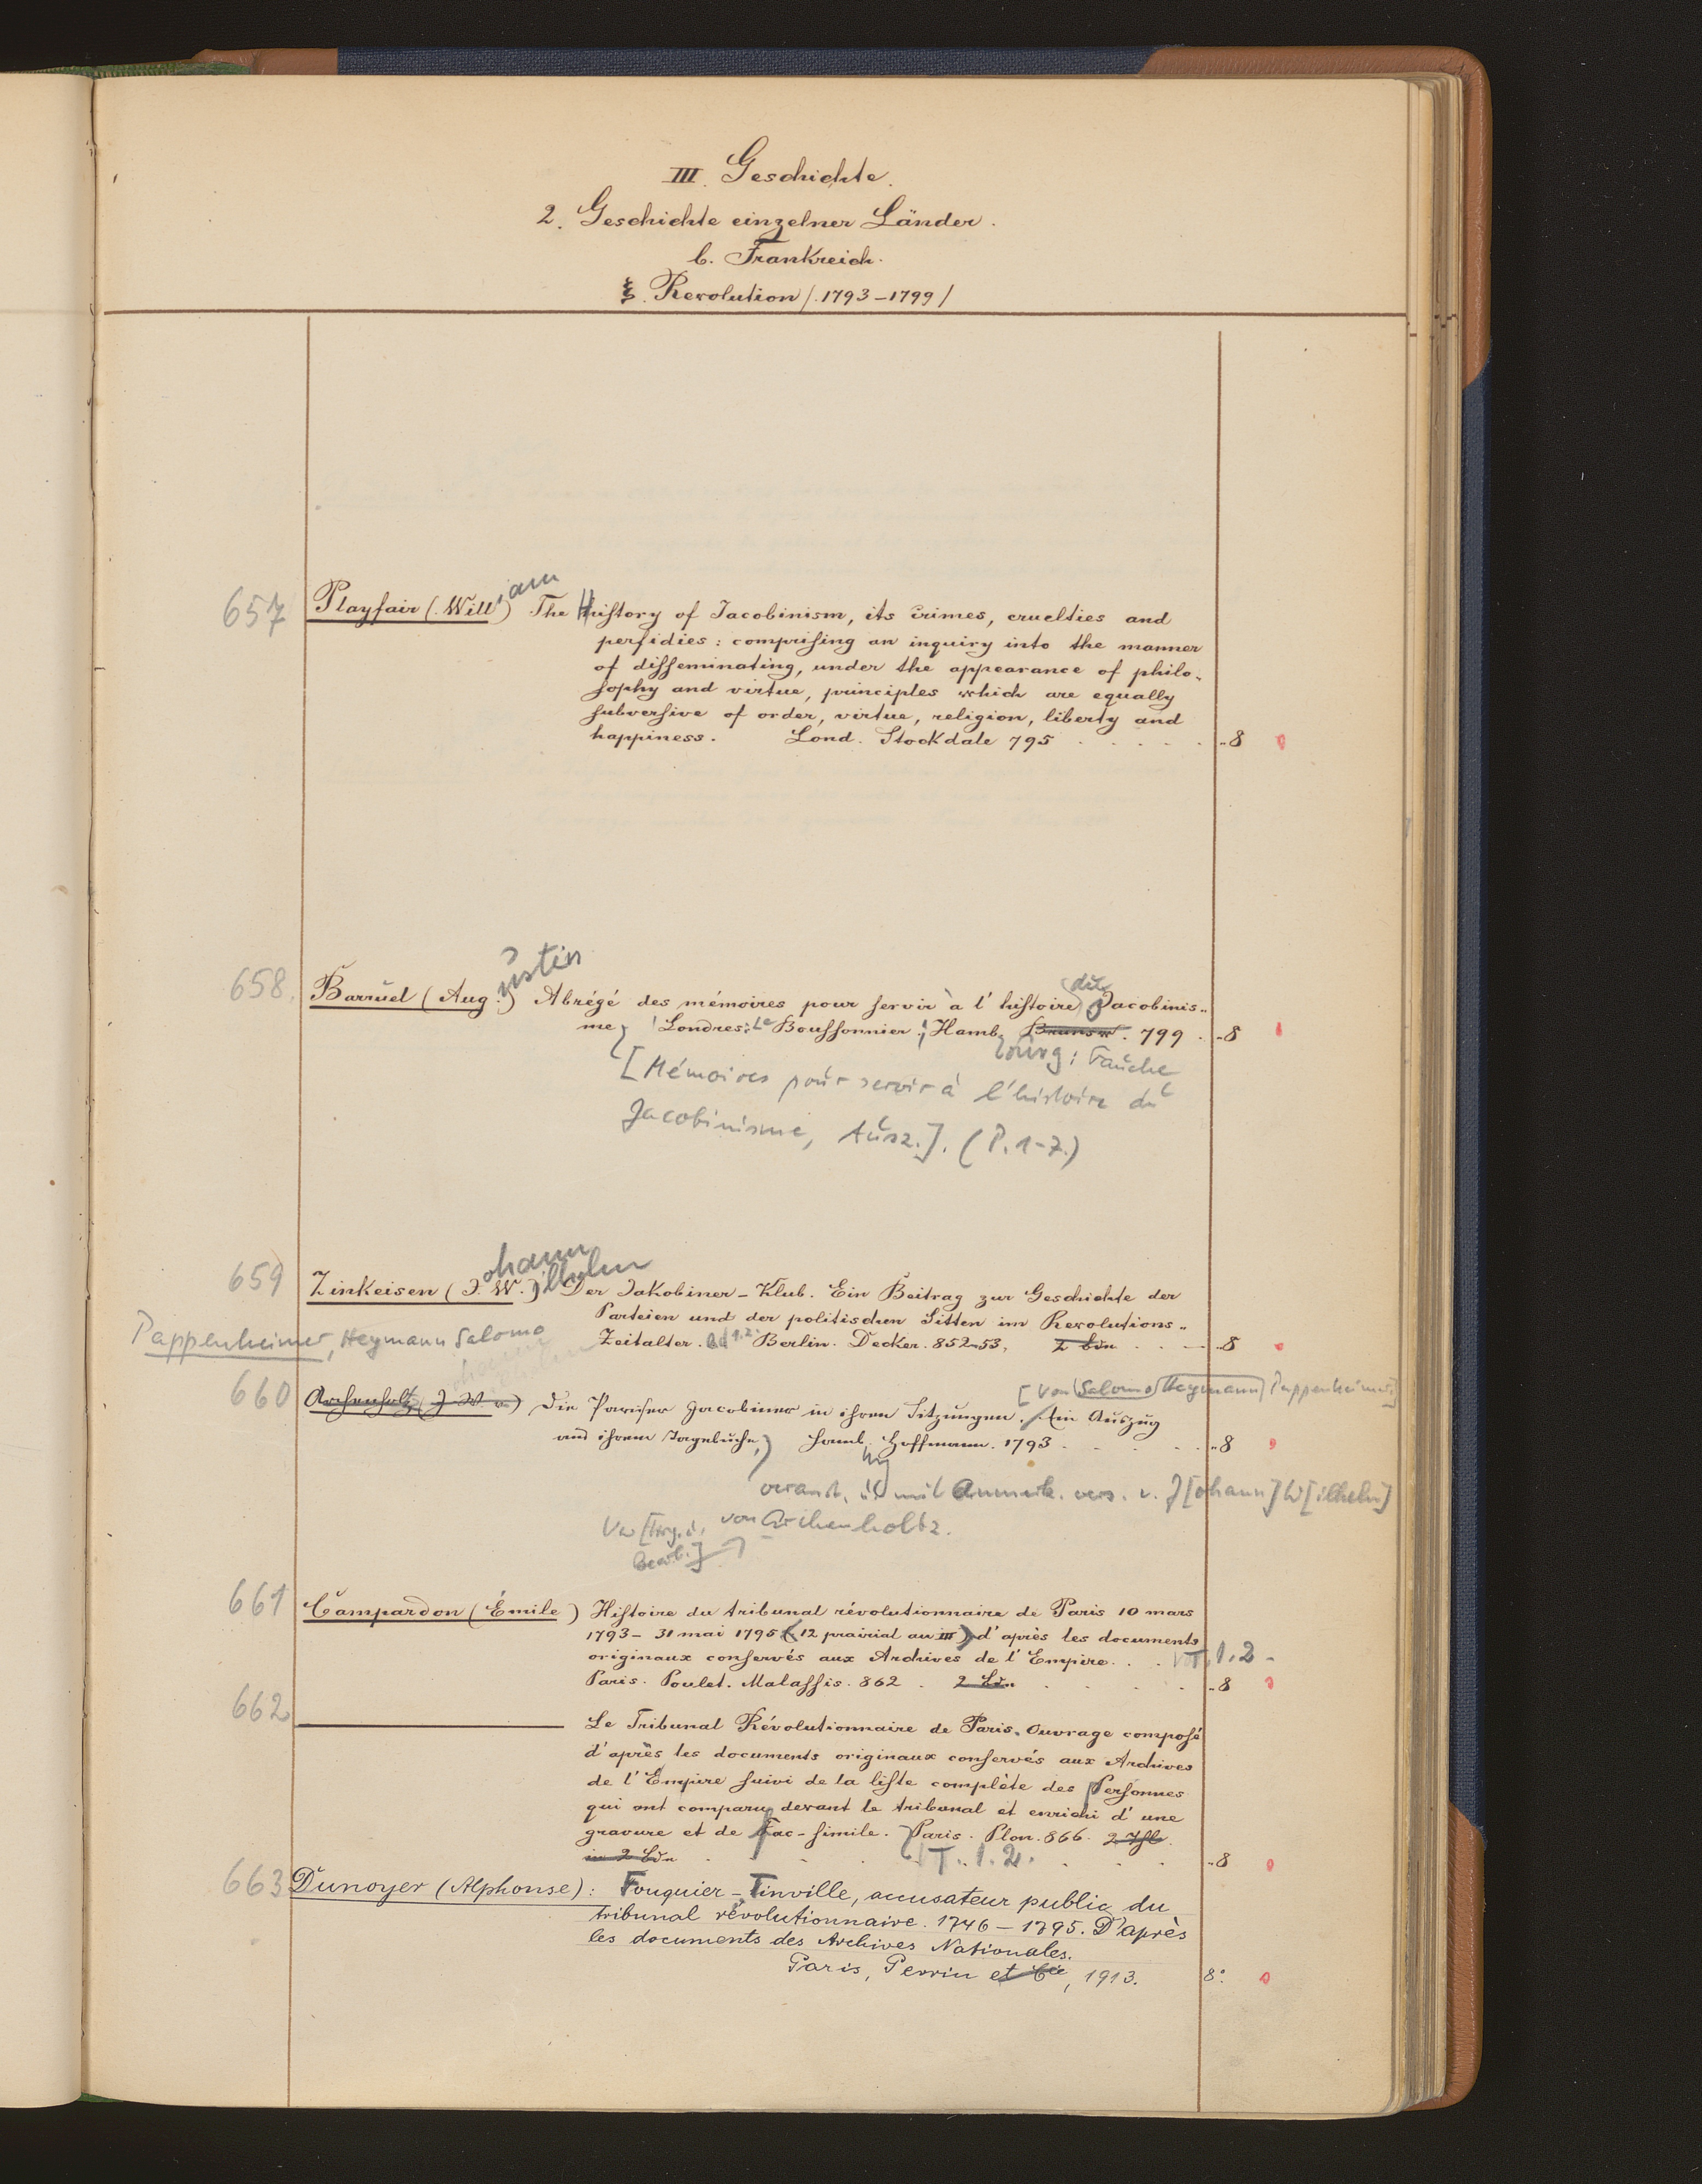 III. Geschichte.
2. Geschichte einzelner Länder.
b. Frankreich.
ξ. Revolution /.1793–1799/
657 Playfair (Will)iam The History of Jacobinism, its crimes, cruelties and
perfidies: comprising an inquiry into the manner
of disseminating, under the appearance of philo-
sophy and virtue, principles which are equally
subversive of order, virtue, religion, liberty and
happiness. Lond. Stockdale 795 . . . . . ..8
658. Barruel (Aug.)ustin Abrégé des mémoires pour servir à l'histoire du Jacobinis..
me, Londres: Le Boussonnier; Hamb Brunsw. 799 . ..8
burg: Fauche
[Mémoires pour servir à l'histoire du
Jacobinisme, Ausz.]. (P. 1-7.)
659 Zinkeisen (J.ohann W.)ilhelm Der Jakobiner-Klub. Ein Beitrag zur Geschichte der
Parteien und der politischen Sitten im Revolutions..
Zeitalter. Bd 1.2. Berlin. Decker. 852-53. 2 Bde . . ..8
Pappenheimer, Heymann Salomo
[von Salomo Heymann Pappenheimer]
660 Archenholtz (J. W. v.) Die Pariser Jacobiner in ihren Sitzungen. Ein Auszug
aus ihrem Tagebuche, Hamb. Hoffmann. 1793 . . . . ..8
bg
veranst. u. mit Anmerk. vers. v. J[ohann] W[ilhelm]
von Archenholtz.
Vw [Hrsg. u.
Bearb.]
661 Campardon (Émile) Histoire du tribunal révolutionnaire de Paris 10 mars
1793 – 31 mai 1795 (12 prairial an III) d'après les documents
originaux conservés aux Archives de l'Empire. . . T. 1.2.
Paris. Poulet-Malassis. 862 . 2 Bde . . . . ..8
662 ——— Le Tribunal Révolutionnaire de Paris. Ouvrage composé
d'après les documents originaux conservés aux Archives
de l'Empire suivi de la liste complète des Personnes
qui ont comparu devant le tribunal et enrichi d'une
gravure et de Fac-simile. Paris. Plon. 866. 2 Thle.
in 2 Bdn . . T. 1.2. . . . ..8
663 Dunoyer (Alphonse): Fouquier-Tinville, accusateur public du
tribunal révolutionnaire. 1746–1795. D'après
les documents des Archives Nationales.
Paris, Perrin et Cie, 1913. 8°.